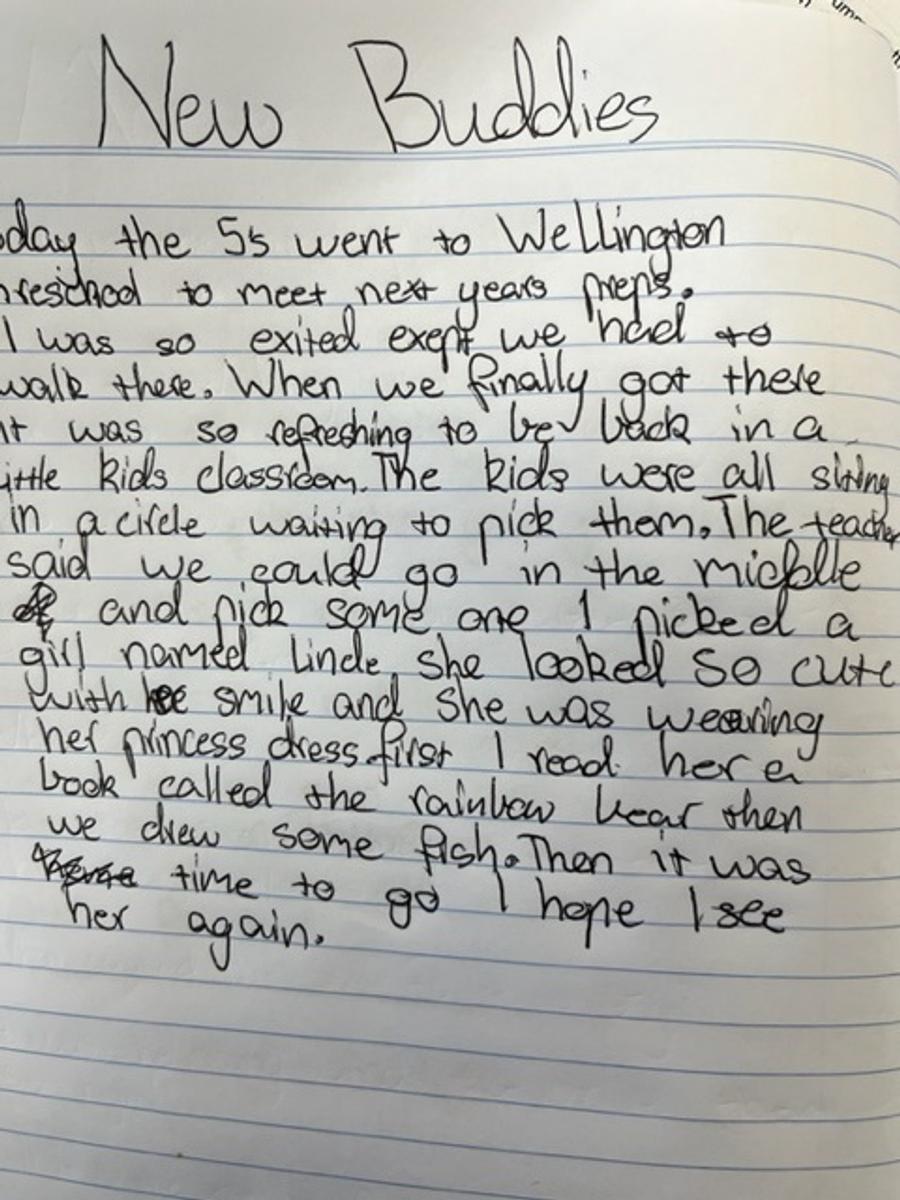 New Buddies
oday the 5s went to Wellington
preschool to meet next years preps.
I was so exited exept we had to
walk there. When we finally got there
it was so refreshing to be back in a
little kids classroom. The kids were all sitting
in a circle waiting to pick them. The teacher
said we could go in the middle
and pick some one I picked a
girl named Linde she looked so cute
with her smile and she was wearing
her princess dress. first I read her a
book called the rainbow bear then
we drew some fish. Then it was
time to go I hope I see
her again.